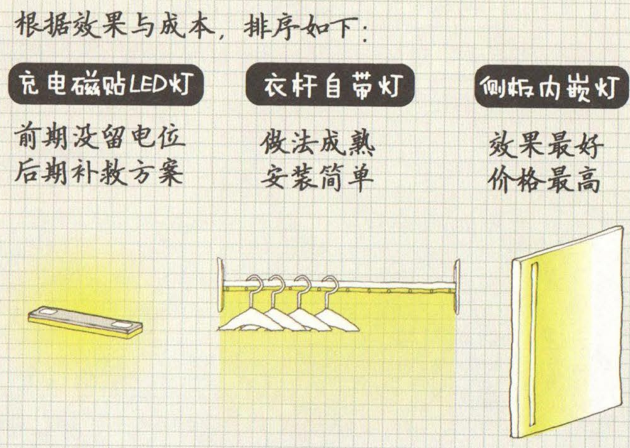 根据效果与成本，排序如下：
充电磁贴LED灯
前期没留电位
后期补救方案
衣杆自带灯
做法成熟
安装简单
侧板内嵌灯
效果最好
价格最高